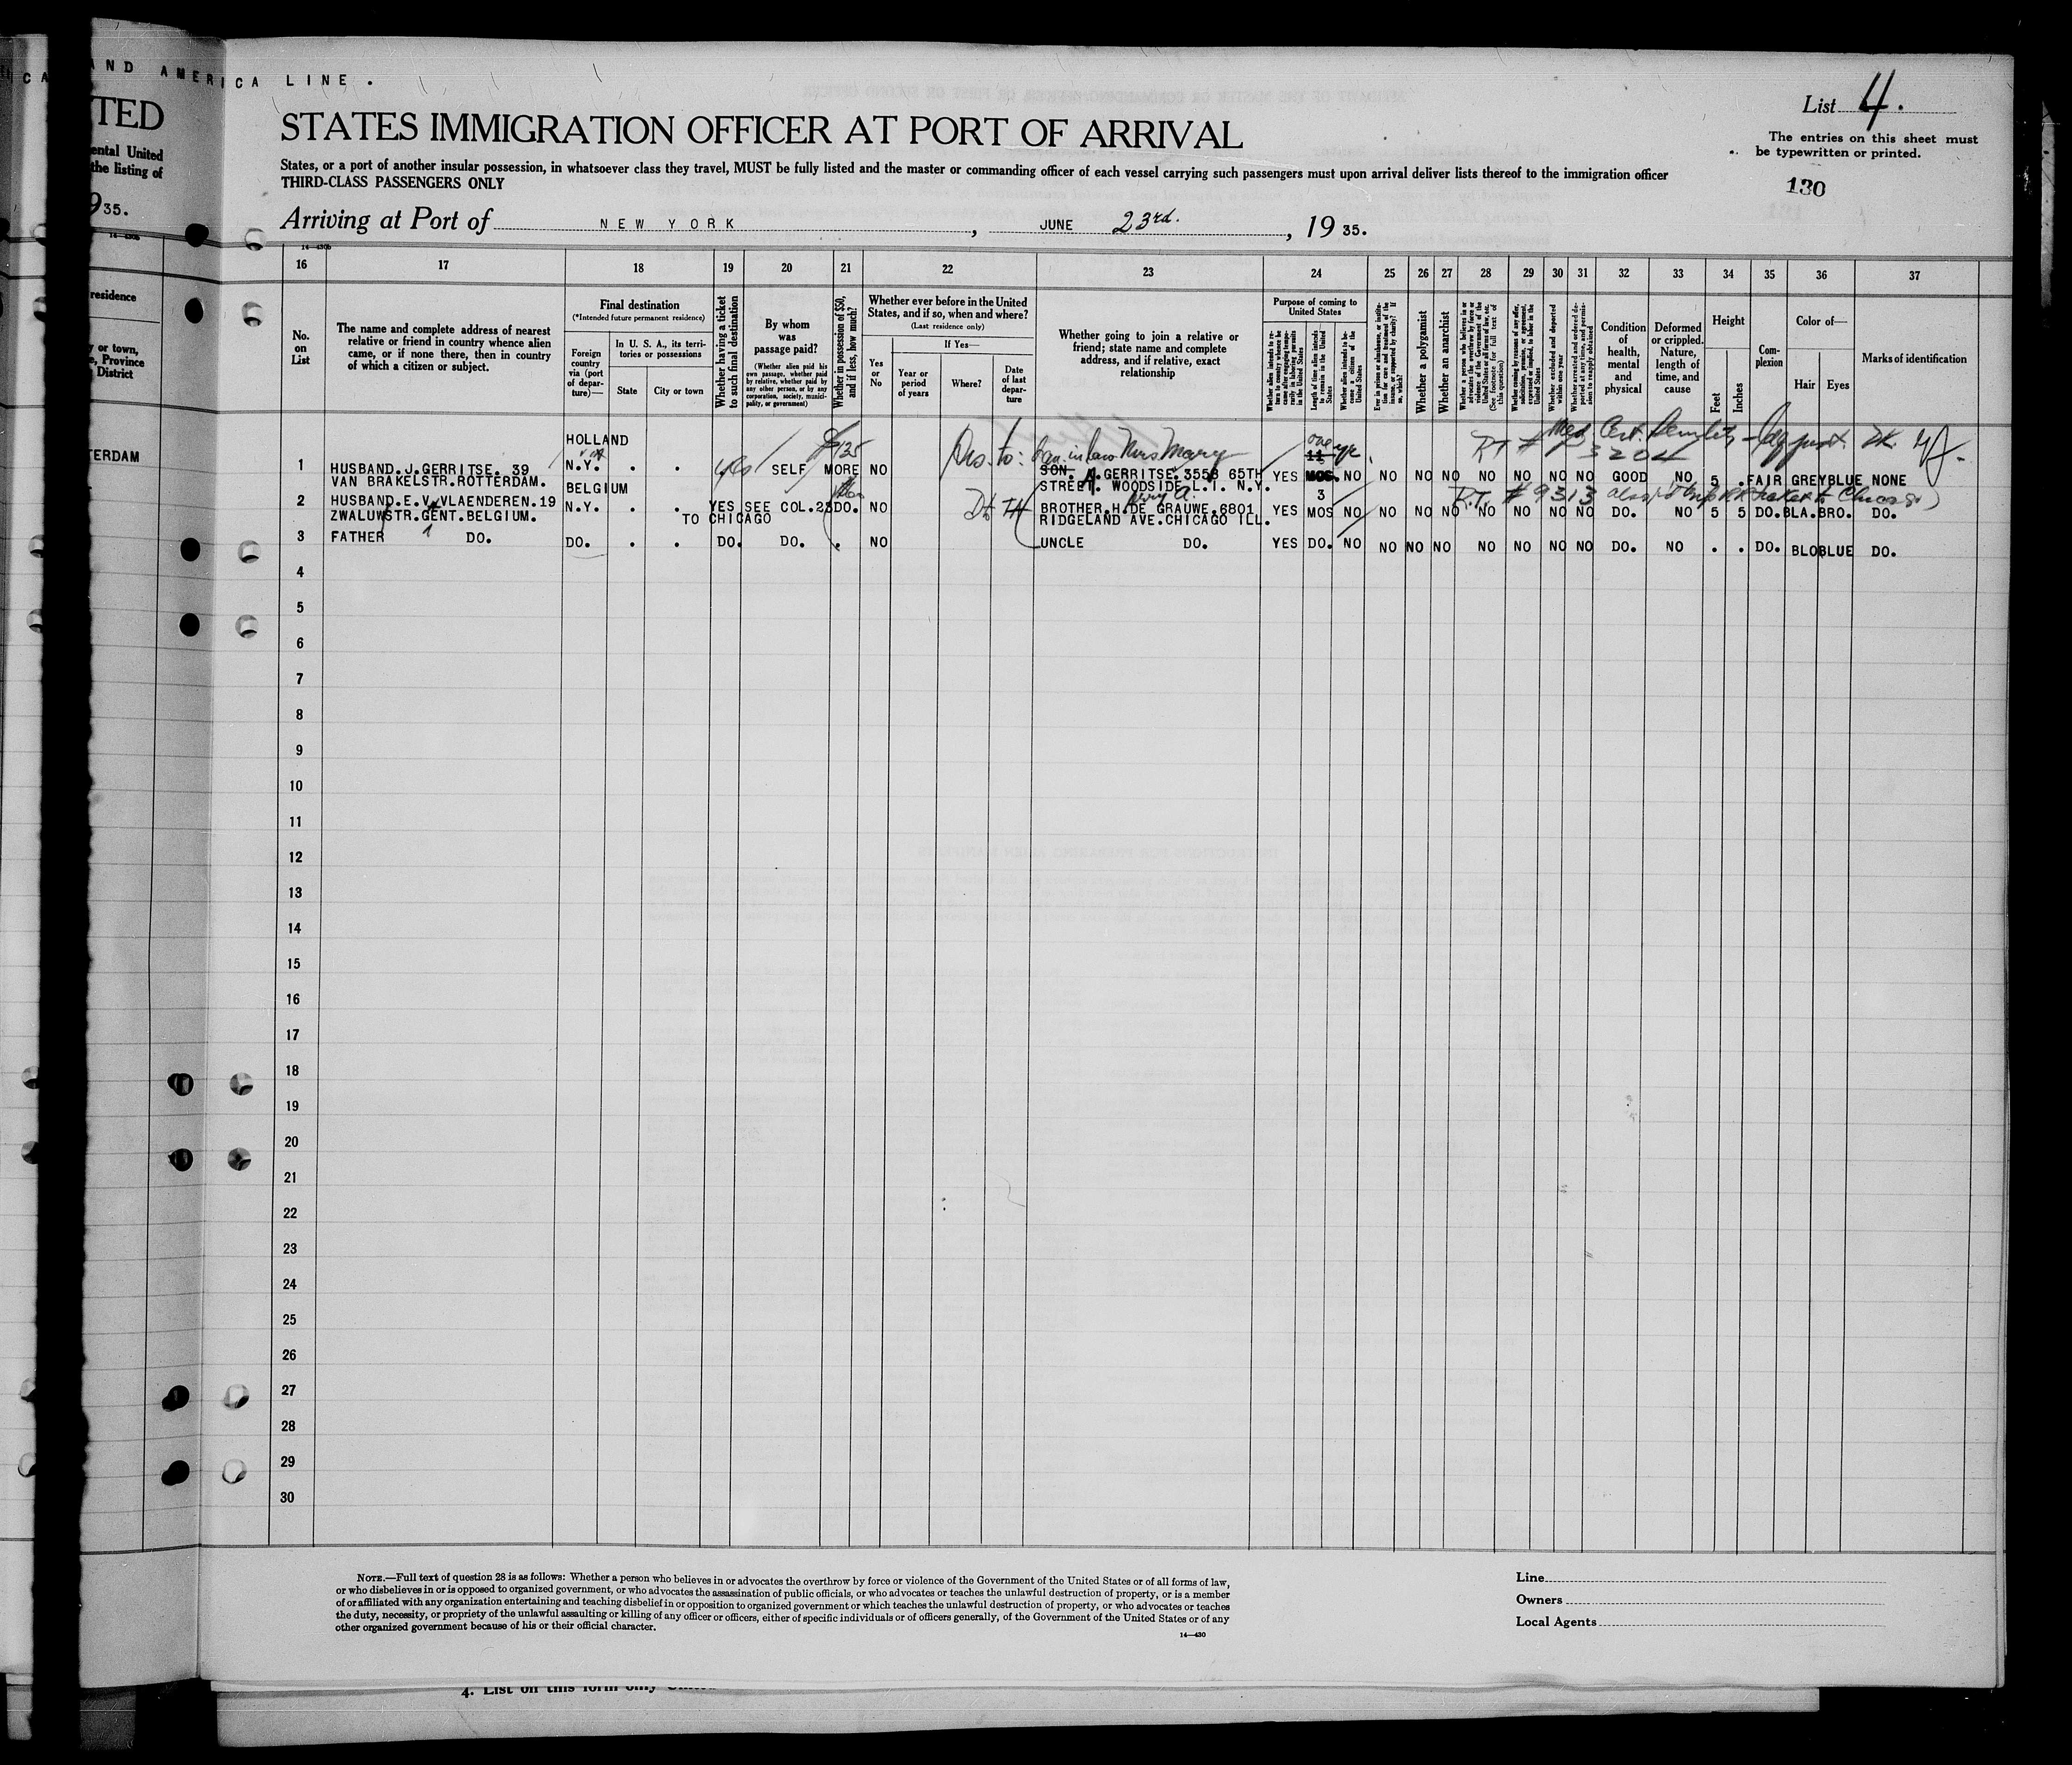 AND AMERICA LINE.
TED
ental United
the listing of
935.
14-430b
residence
y or town,
e, Province
District
ERDAM
List 4.
The entries on this sheet must
be typewritten or printed.
130
STATES IMMIGRATION OFFICER AT PORT OF ARRIVAL
States, or a port of another insular possession, in whatsoever class they travel, MUST be fully listed and the master or commanding officer of each vessel carrying such passengers must upon arrival deliver lists thereof to the immigration officer
THIRD-CLASS PASSENGERS ONLY
Arriving at Port of NEW YORK, JUNE 23rd., 1935.
14-430b
16 17 18 19 20 21 22 23 24 25 26 27 28 29 30 31 32 33 34 35 36 37
No. on List
The name and complete address of nearest relative or friend in country whence alien came, or if none there, then in country of which a citizen or subject.
Final destination
(*Intended future permanent residence)
Foreign country via (port of departure)—
In U. S. A., its territories or possessions
State
City or town
Whether having a ticket to such final destination
By whom was passage paid?
(Whether alien paid his own passage, whether paid by relative, whether paid by any other person, or by any corporation, society, municipality, or government)
Whether in possession of $50, and if less, how much?
Whether ever before in the United States, and if so, when and where?
(Last residence only)
Yes or No
If Yes—
Year or period of years
Where?
Date of last departure
Whether going to join a relative or friend; state name and complete address, and if relative, exact relationship
Purpose of coming to United States
Whether alien intends to return to country whence he came after engaging temporarily in laboring pursuits in the United States
Length of time alien intends to remain in the United States
Whether alien intends to become a citizen of the United States
Ever in prison or almshouse, or institution for care and treatment of the insane, or supported by charity? If so, which?
Whether a polygamist
Whether an anarchist
Whether a person who believes in or advocates the overthrow by force or violence of the Government of the United States or all forms of law, etc. (See footnote for full text of this question)
Whether coming by reason of any offer, solicitation, promise, or agreement, expressed or implied, to labor in the United States
Whether excluded and deported within one year
Whether arrested and ordered deported at any time, and permission to reapply obtained
Condition of health, mental and physical
Deformed or crippled. Nature, length of time, and cause
Height
Feet
Inches
Complexion
Color of—
Hair
Eyes
Marks of identification
Med. Cert.
HOLLAND $125 Dis. to: Mrs Mary one yr. RT # 3204
1 HUSBAND.J.GERRITSE. 39 N.Y. . . yes SELF MORE NO SON. A.GERRITSE.3558 65TH YES 11 MOS. NO NO NO NO NO NO NO NO GOOD NO 5 . FAIR GREY BLUE NONE
VAN BRAKELSTR.ROTTERDAM. STREET. WOODSIDE L.I. N.Y.
BELGIUM 3 R.T. #9313
2 HUSBAND.E.V.VLAENDEREN.19 N.Y. . . YES SEE COL.23 DO. NO BROTHER.H.DE GRAUWE.6801 YES MOS NO NO NO NO NO NO NO NO DO. NO 5 5 DO. BLA. BRO. DO.
ZWALUWSTR.GENT.BELGIUM. TO CHICAGO RIDGELAND AVE.CHICAGO ILL.
3 FATHER DO. DO. . . DO. DO. . NO UNCLE DO. YES DO. NO NO NO NO NO NO NO NO DO. NO . . DO. BLO BLUE DO.
4
5
6
7
8
9
10
11
12
13
14
15
16
17
18
19
20
21
22
23
24
25
26
27
28
29
30
NOTE.—Full text of question 28 is as follows: Whether a person who believes in or advocates the overthrow by force or violence of the Government of the United States or of all forms of law,
or who disbelieves in or is opposed to organized government, or who advocates the assassination of public officials, or who advocates or teaches the unlawful destruction of property, or is a member
of or affiliated with any organization entertaining and teaching disbelief in or opposition to organized government or which teaches the unlawful destruction of property, or who advocates or teaches
the duty, necessity, or propriety of the unlawful assaulting or killing of any officer or officers, either of specific individuals or of officers generally, of the Government of the United States or of any
other organized government because of his or their official character.
14-430
Line
Owners
Local Agents
4. List on this form only